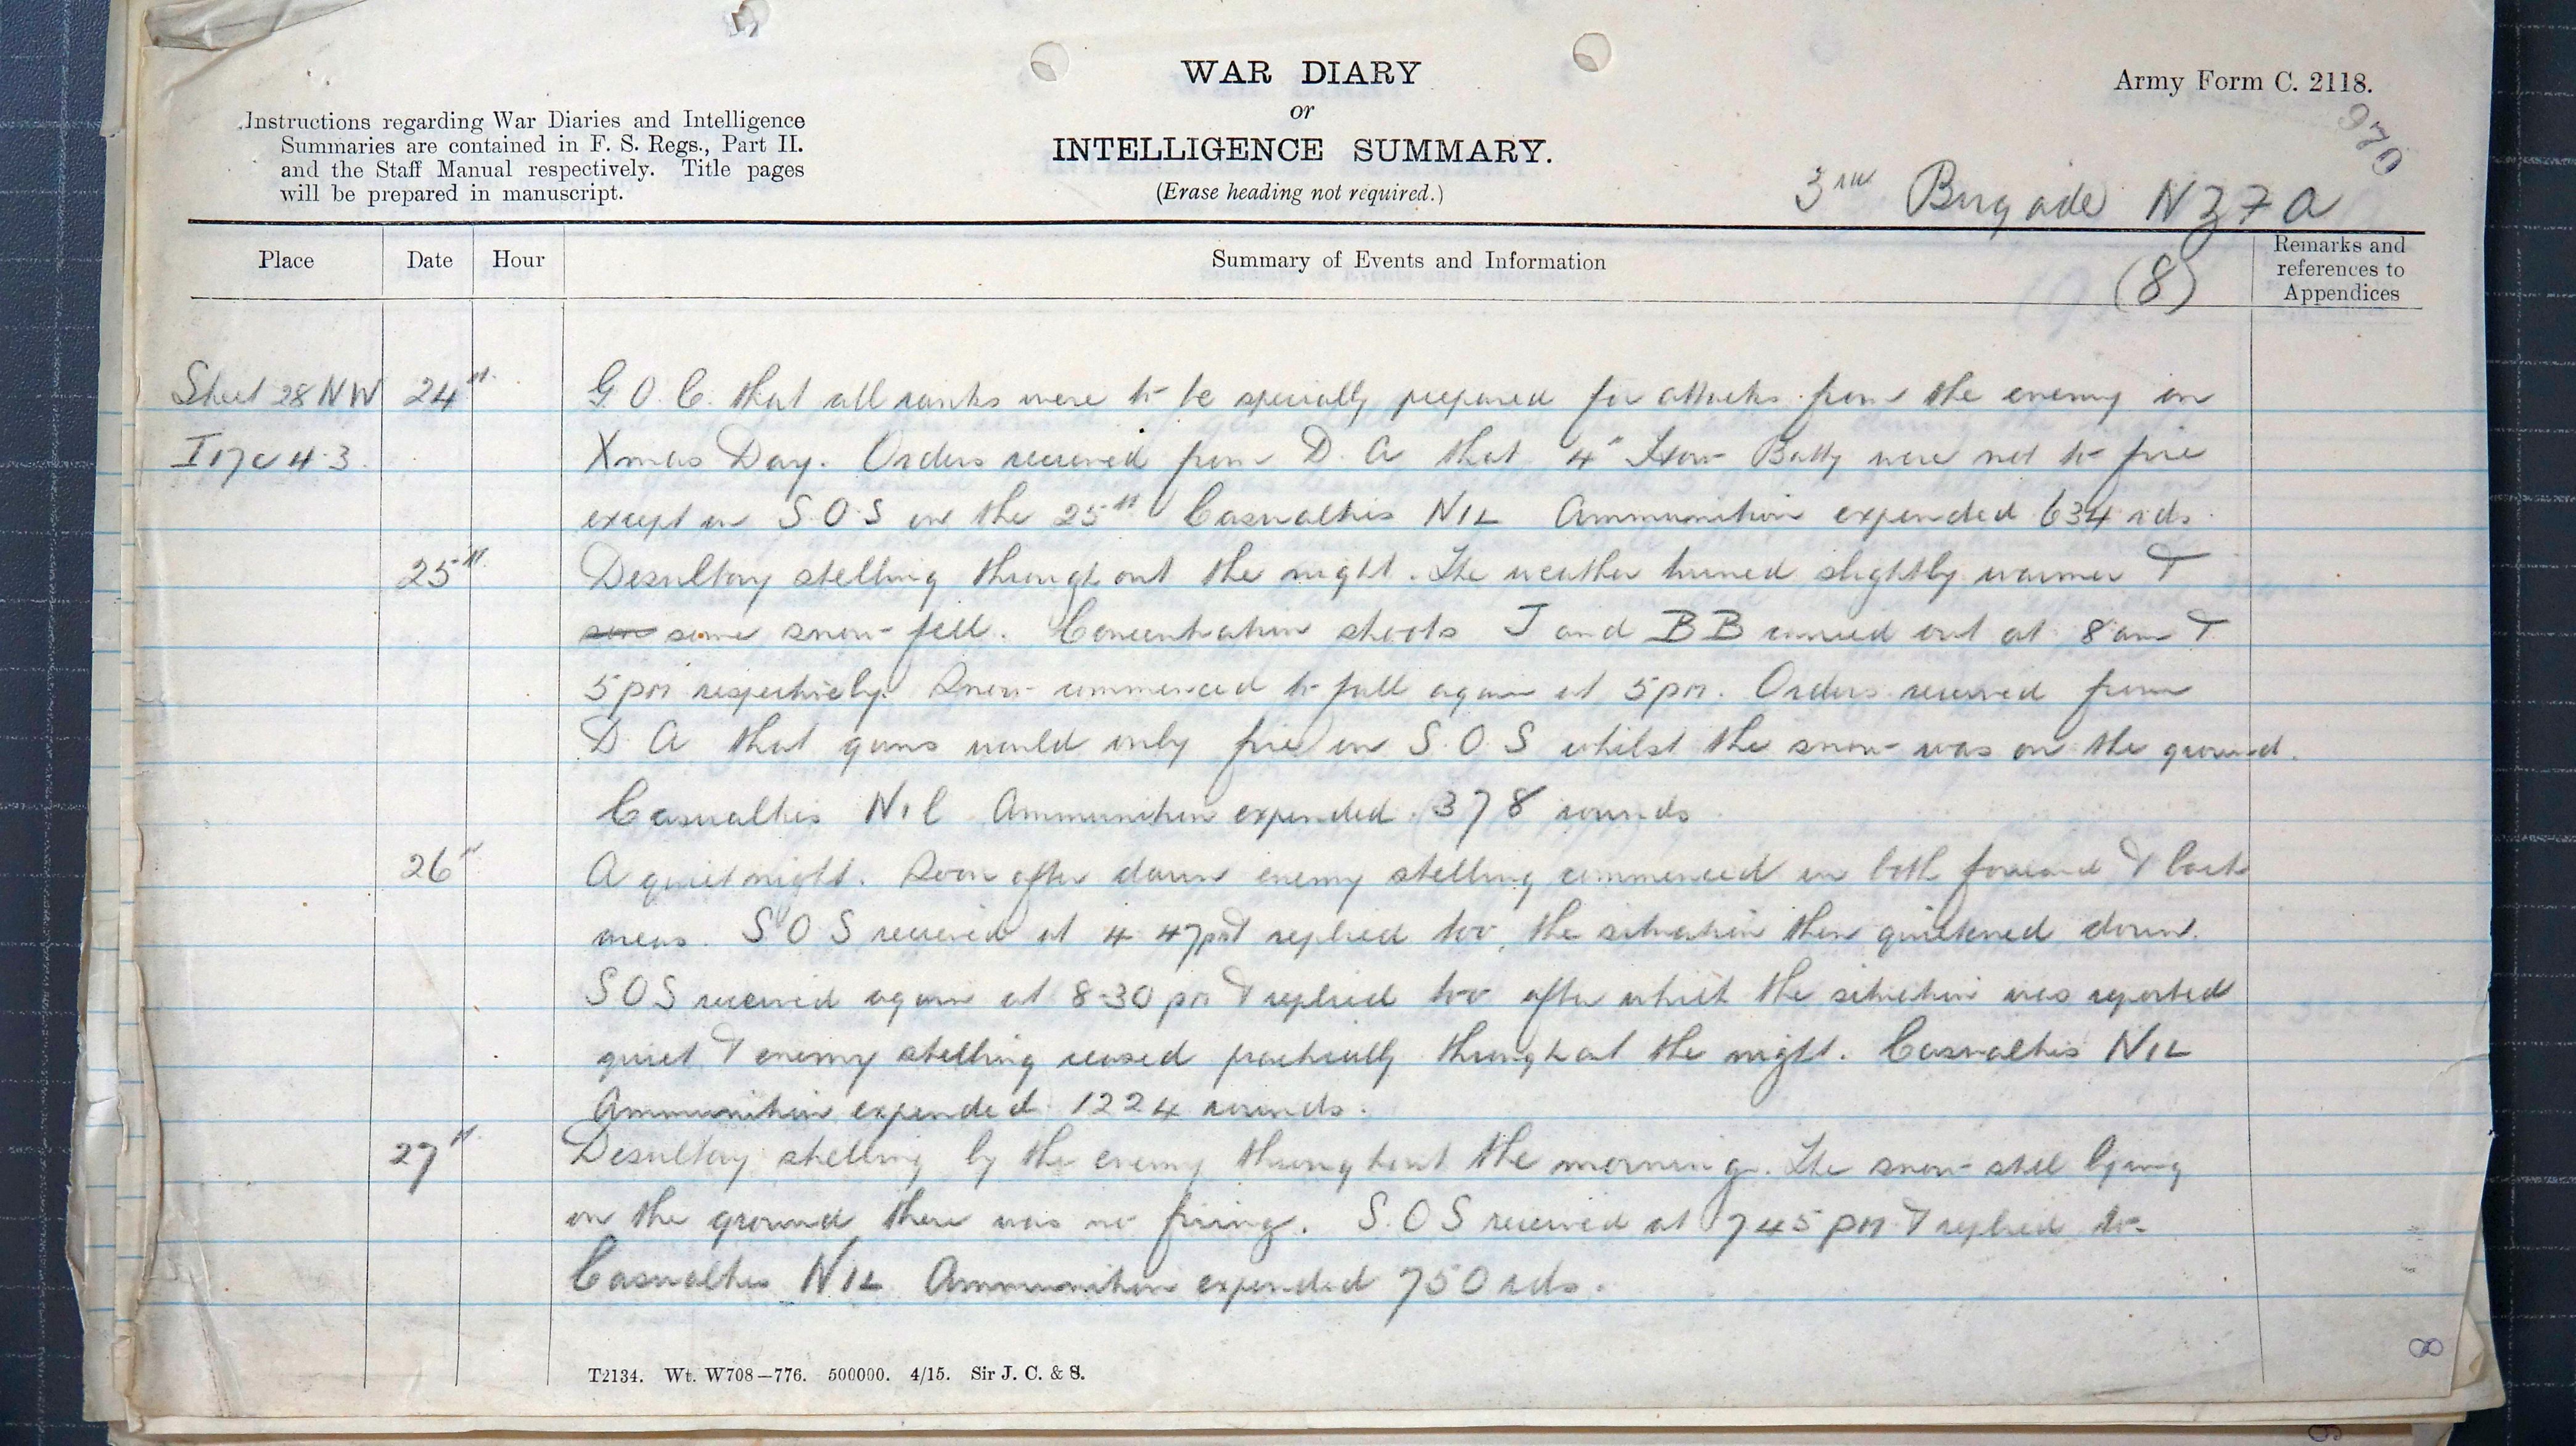 WAR DIARY
or
INTELLIGENCE SUMMARY.
(Erase heading not required.)
Army Form C. 2118.
970
Instructions regarding War Diaries and Intelligence
Summaries are contained in F. S. Regs., Part II.
and the Staff Manual respectively. Title pages
will be prepared in manuscript.
3rd Brigade NZFA
(8)
Place Date Hour Summary of Events and Information Remarks and
references to
Appendices
Sheet 28 NW 24th G.O.C. that all ranks were to be specially prepared for attacks from the enemy on
I 17 c 4.3. Xmas Day. Orders received from D.A that 4" How Batty were not to fire
except on S.O.S on the 25th Casualties NIL Ammunition expended 634 rds.
25th Desultory shelling throughout the night. The weather turned slightly warmer &
some snow fell. Concentration shoots J and BB carried out at 8am &
5pm respectively. Snow commenced to fall again at 5pm. Orders received from
D.A that guns would only fire on S.O.S whilst the snow was on the ground.
Casualties Nil Ammunition expended 378 rounds
26th A quiet night. Soon after dawn enemy shelling commenced on both forward & back
areas. S O S received at 4 47pm & replied too, the situation then quietened down.
SOS received again at 8-30 pm & replied too after which the situation was reported
quiet & enemy shelling ceased practically throughout the night. Casualties NIL
Ammunition expended 1224 rounds.
27th Desultory shelling by the enemy throughout the morning. The snow still lying
on the ground there was no firing. S.O S received at 7 45 pm & replied to
Casualties NIL Ammunition expended 750 rds.
T2134. Wt. W708—776. 500000. 4/15. Sir J. C. & S.
8